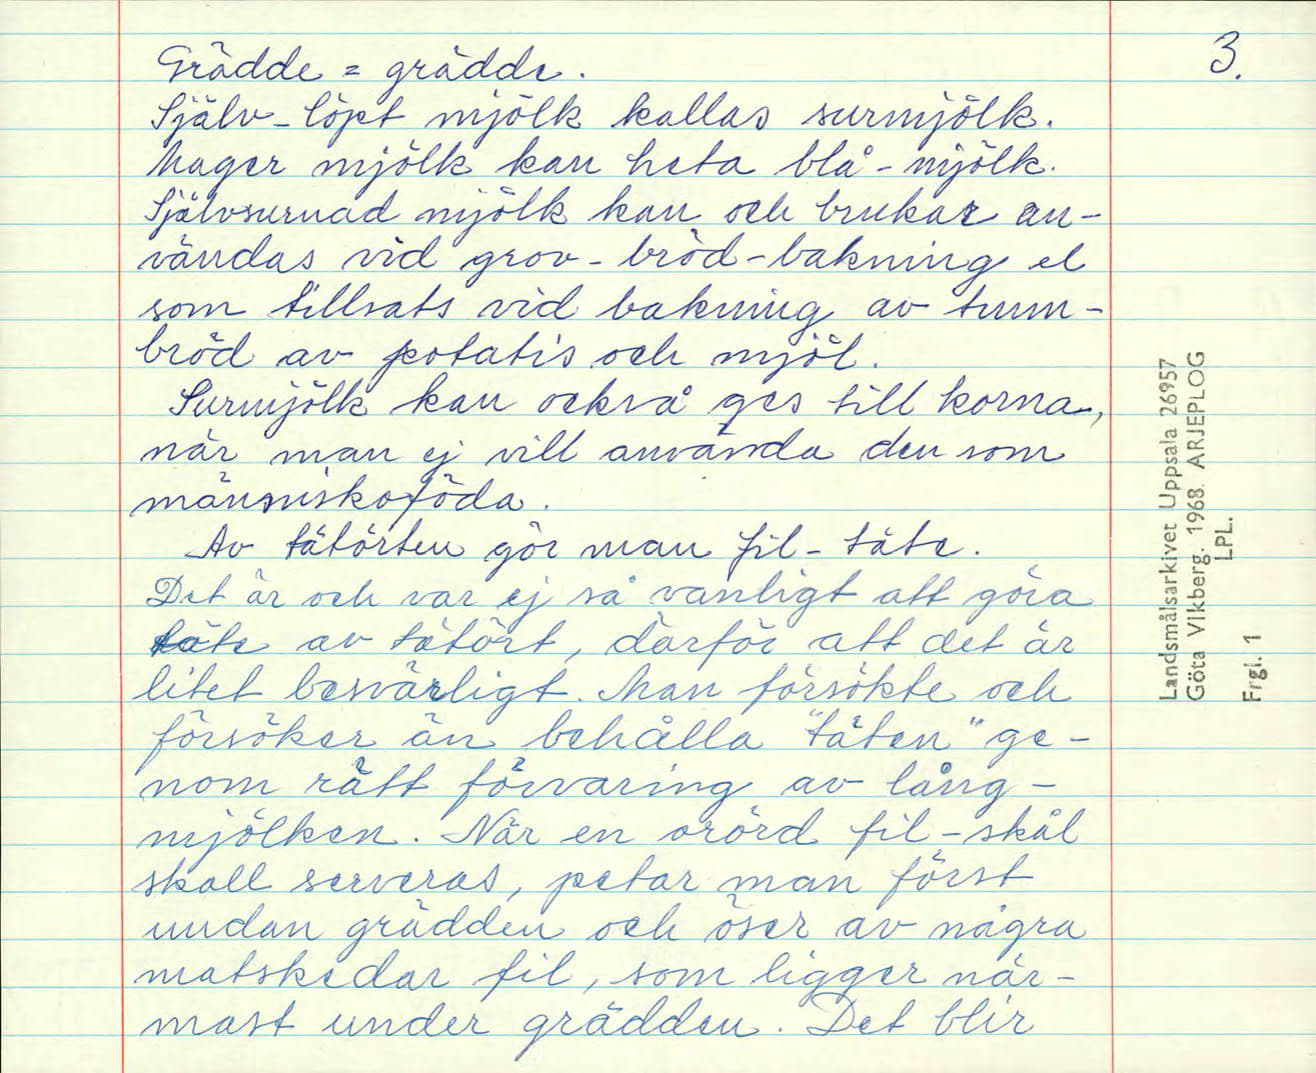 3.
Grädde = grädde.
Själv-löpt mjölk kallas surmjölk.
Mager mjölk kan heta blå-mjölk.
Självsurnad mjölk kan och brukar an-
vändas vid grov-bröd-bakning el
som tillsats vid bakning av tunn-
bröd av potatis och mjöl.
Surmjölk kan också ges till korna,
när man ej vill använda den som
människoföda.
Av tätörten gör man fil-täte.
Det är och var ej så vanligt att göra
täte av tätört, därför att det är
litet besvärligt. Man försökte och
försöker än behålla "täten" ge-
nom rätt förvaring av lång-
mjölken. När en orörd fil-skål
skall serveras, petar man först
undan grädden och öser av några
matskedar fil, som ligger när-
mast under grädden. Det blir
Landsmålsarkivet Uppsala 26957
Göta Vikberg. 1968. ARJEPLOG
LPL.
Frgl. 1